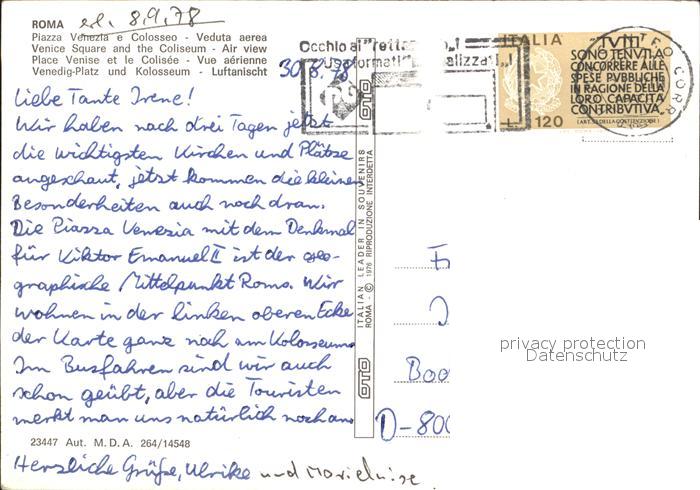 ROMA el. 8.9.78
Piazza Venezia e Colosseo - Veduta aerea
Venice Square and the Coliseum - Air view
Place Venise et le Colisée - Vue aérienne
Venedig-Platz und Kolosseum - Luftanischt
30.8.78
Liebe Tante Irene!
Wir haben nach drei Tagen jetzt
die wichtigsten Kirchen und Plätze
angeschaut, jetzt kommen die kleinen
Besonderheiten auch noch dran.
Die Piazza Venezia mit dem Denkmal
für Viktor Emanuel II ist der geo-
graphische Mittelpunkt Roms. Wir
wohnen in der linken oberen Ecke
der Karte ganz nah am Kolosseum.
Im Busfahren sind wir auch
schon geübt, aber die Touristen
merkt man uns natürlich noch an.
23447 Aut. M.D.A. 264/14548
Herzliche Grüße, Ulrike und Marieluise.
OTO
ITALIAN LEADER IN SOUVENIRS
ROMA - © 1976 RIPRODUZIONE INTERDETTA
OTO
Occhio ai
ITALIA
TUTTI
SONO TENUTI A
CONCORRERE ALLE
SPESE PUBBLICHE
IN RAGIONE DELLA
LORO CAPACITÀ
CONTRIBUTIVA.
(ART. 53 DELLA COSTITUZIONE)
L. 120
Boo
D-800
privacy protection
Datenschutz